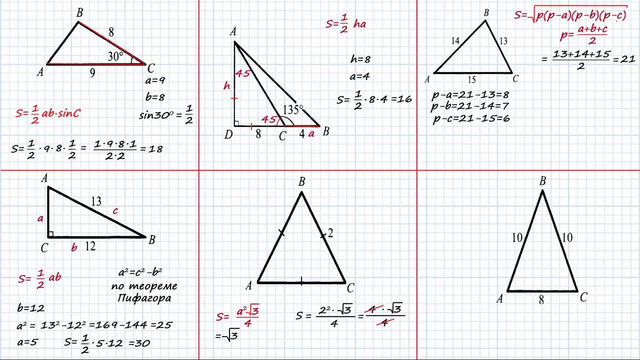 B
8
30°
A
9
C
a=9
b=8
sin30° = 1/2
S=1/2 ab·sinC
S= 1/2 ·9·8· 1/2 = 1·9·8·1/2·2 = 18
S=1/2 ha
A
45
h
135°
45
D
8
C
4
a
B
h=8
a=4
S= 1/2 ·8·4 =16
B
14
13
A
15
C
S=√p(p-a)(p-b)(p-c)
p= a+b+c/2
= 13+14+15/2 =21
p-a=21-13=8
p-b=21-14=7
p-c=21-15=6
A
13
a
c
C
b
12
B
S= 1/2 ab
a²=c²-b²
по теореме
Пифагора
b=12
a² = 13²-12² =169-144 =25
a=5
S= 1/2 ·5·12 =30
B
2
A
C
S= a²√3/4
S = 2²·√3/4 = 4·√3/4
=√3
B
10
10
A
8
C